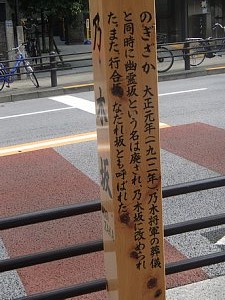 乃木坂
のぎざか 大正元年(一九一二年)乃木将軍の葬儀
と同時に幽霊坂という名は廃され乃木坂に改められ
た。また、行合坂、なだれ坂とも呼ばれた。